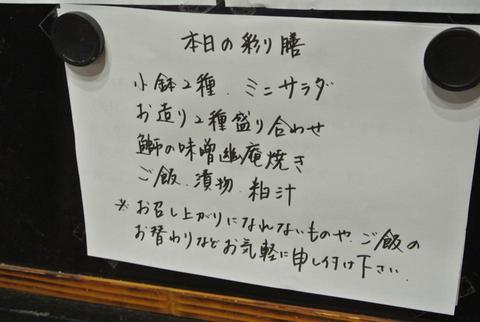 本日の彩り膳
小鉢2種.ミニサラダ
お造り2種盛り合わせ
鰤の味噌幽庵焼き
ご飯.漬物.粕汁
※お召し上がりになれないものや、ご飯の
お替わりなどお気軽に申し付け下さい.